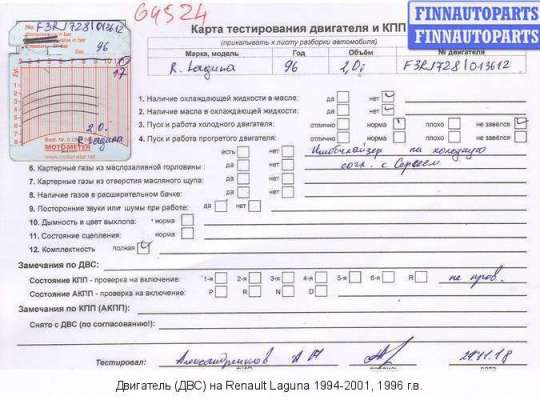 G4524
FINNAUTOPARTS
FINNAUTOPARTS
FINNAUTOPARTS
No F3RJ728|013612
96
17
2,0i
R. Laguna
MOTOMETER
Карта тестирования двигателя и КПП
(прикалывать к листу разборки автомобиля)
Марка, модель Год Объём № двигателя
R. Laguna 96 2,0i F3RJ728|013612
1. Наличие охлаждающей жидкости в масле: да нет
2. Наличие масла в охлаждающей жидкости: да нет
3. Пуск и работа холодного двигателя: отлично норма плохо не завёлся
4. Пуск и работа прогретого двигателя: отлично норма плохо не завёлся
есть нет Иммобилайзер на холодную
6. Картерные газы из маслозаливной горловины: да нет согл. с Сергеем
7. Картерные газы из отверстия масляного щупа: да нет
8. Наличие газов в расширительном бачке: да нет
9. Посторонние звуки или шумы при работе: да нет
10. Дымность и цвет выхлопа: норма
11. Состояние сцепления: норма
12. Комплектность полная
Замечания по ДВС:
Состояние КПП - проверка на включение: 1-я 2-я 3-я 4-я 5-я 6-я R не пров.
Состояние АКПП - проверка на включение: P R N D
Замечания по КПП (АКПП):
Снято с ДВС (по согласованию!):
Тестировал: 29.11.18
Двигатель (ДВС) на Renault Laguna 1994-2001, 1996 г.в.